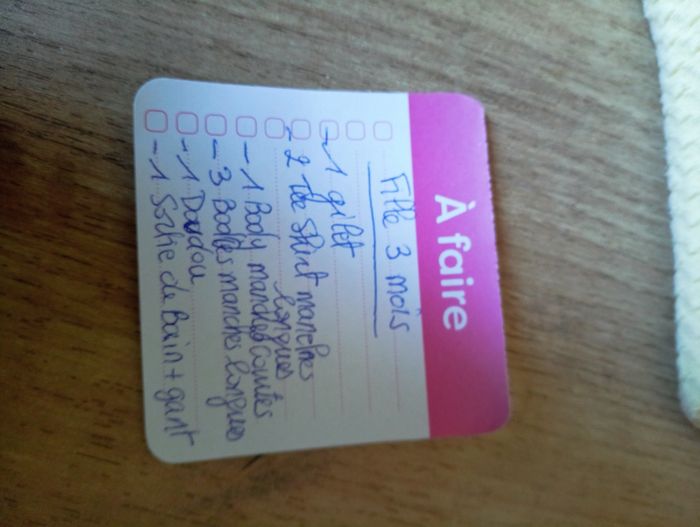 À faire
Fille 3 mois
- 1 gilet
- 2 tee shirt manches
longues
- 1 Body manches courtes
- 3 Bodies manches longues
- 1 Doudou
- 1 Sortie de Bain + gant